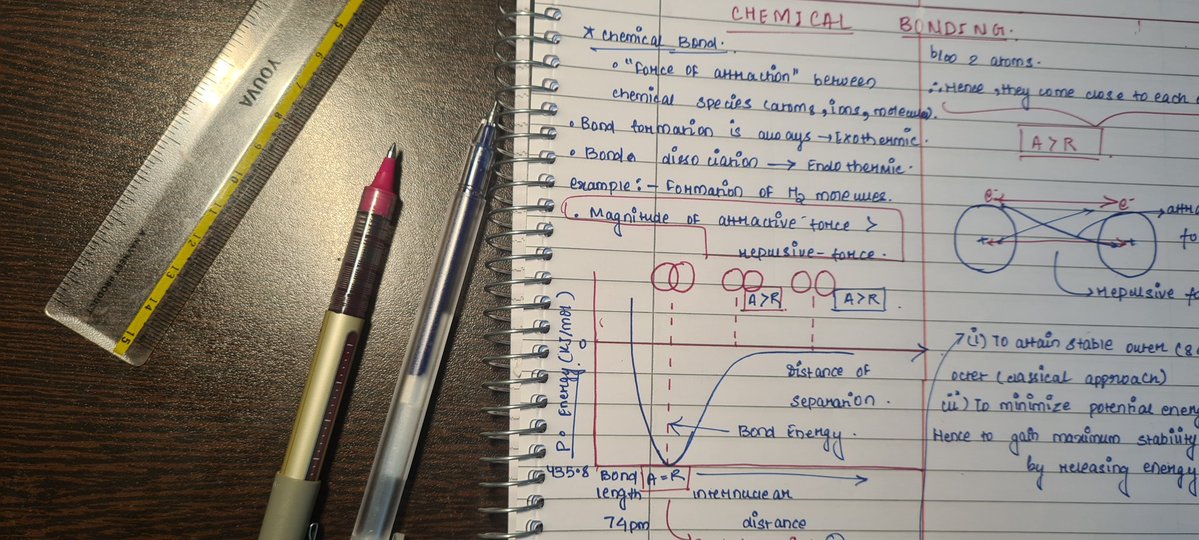 YOUVA
5
6
7
8
9
10
11
12
13
14
15
CHEMICAL BONDING.
* Chemical Bond.
• "Force of attraction" between
chemical species (atoms, ions, molecules).
• Bond formation is always → Exothermic.
• Bond dissociation → Endothermic.
example:- Formation of H2 molecules.
• Magnitude of attractive-force >
repulsive-force.
A>R
A>R
P. Energy (KJ/mol)
0
Distance of
separation.
Bond Energy.
435.8
Bond
length
A=R
internuclear
74pm
distance
b/w 2 atoms.
∴ Hence, they come close to each
A>R
e-
e-
+
+
→ attr
fo
→ repulsive fo
(i) To attain stable outer (8
octet (classical approach)
(ii) To minimize potential energy
Hence to gain maximum stability
by releasing energy